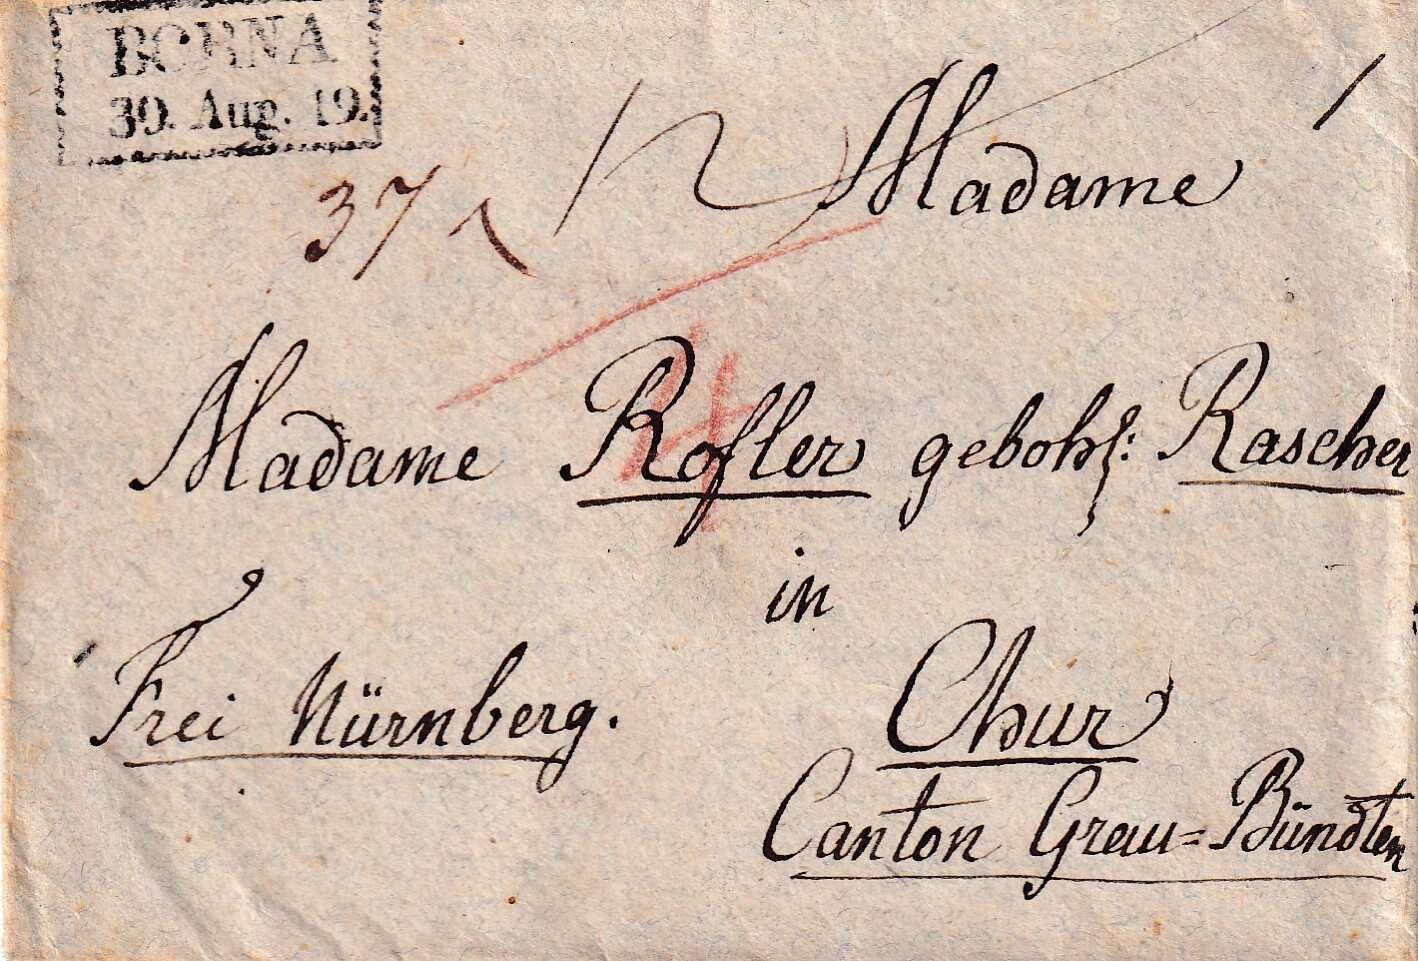 BORNA
30. Aug. 19.
37
Madame
Madame Rofler gebohr: Rascher
in
Frei Nürnberg.
Chur
Canton Grau=Bündten